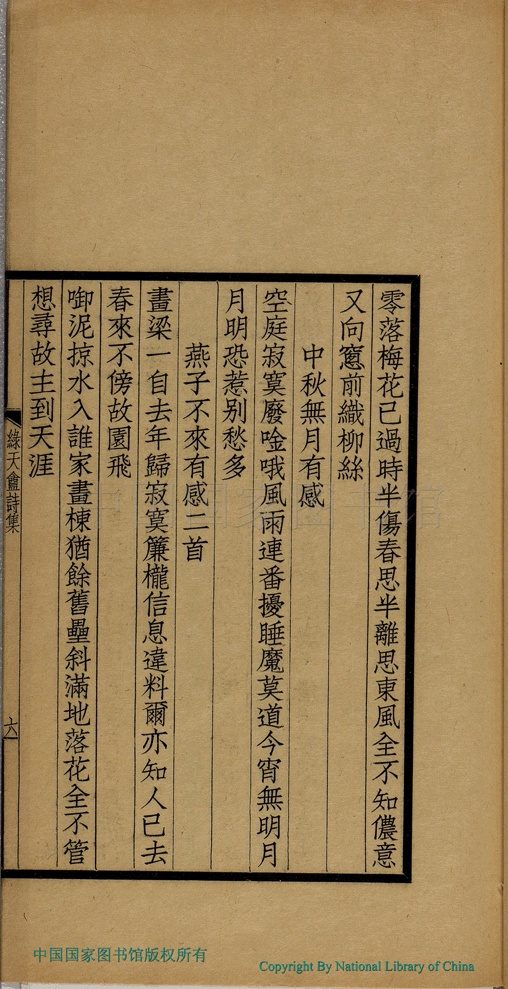 零落梅花已過時半傷春思半離思東風全不知儂意
又向窻前織柳絲
中秋無月有感
空庭寂寞廢唫哦風雨連番擾睡魔莫道今宵無明月
月明恐惹别愁多
燕子不來有感二首
畫梁一自去年歸寂寞簾櫳信息違料爾亦知人已去
春來不傍故園飛
啣泥掠水入誰家畫棟猶餘舊壘斜滿地落花全不管
想尋故主到天涯
綠天盦詩集
六
中国国家图书馆
中国国家图书馆版权所有
Copyright By National Library of China